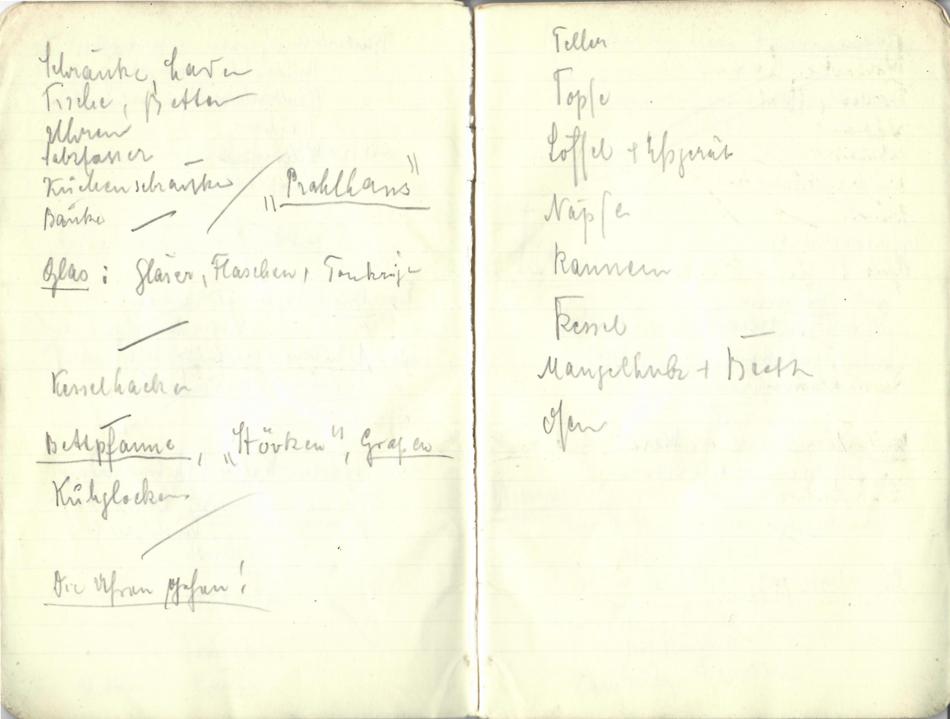 Schränke, Laden
Tische, Betten
Uhren
Salzfässer
Küchenschränke
"Prahlhans"
Bänke
Glas: Gläser, Flaschen, Tonkrüge
Kesselhacken
Bettpfanne, „Stövken", Grapen
Kuhglocken
Die Uhren gehen!
Teller
Töpfe
Löffel + Eßgerät
Näpfe
Kannen
Kessel
Mangelholz + Brett
Ofen